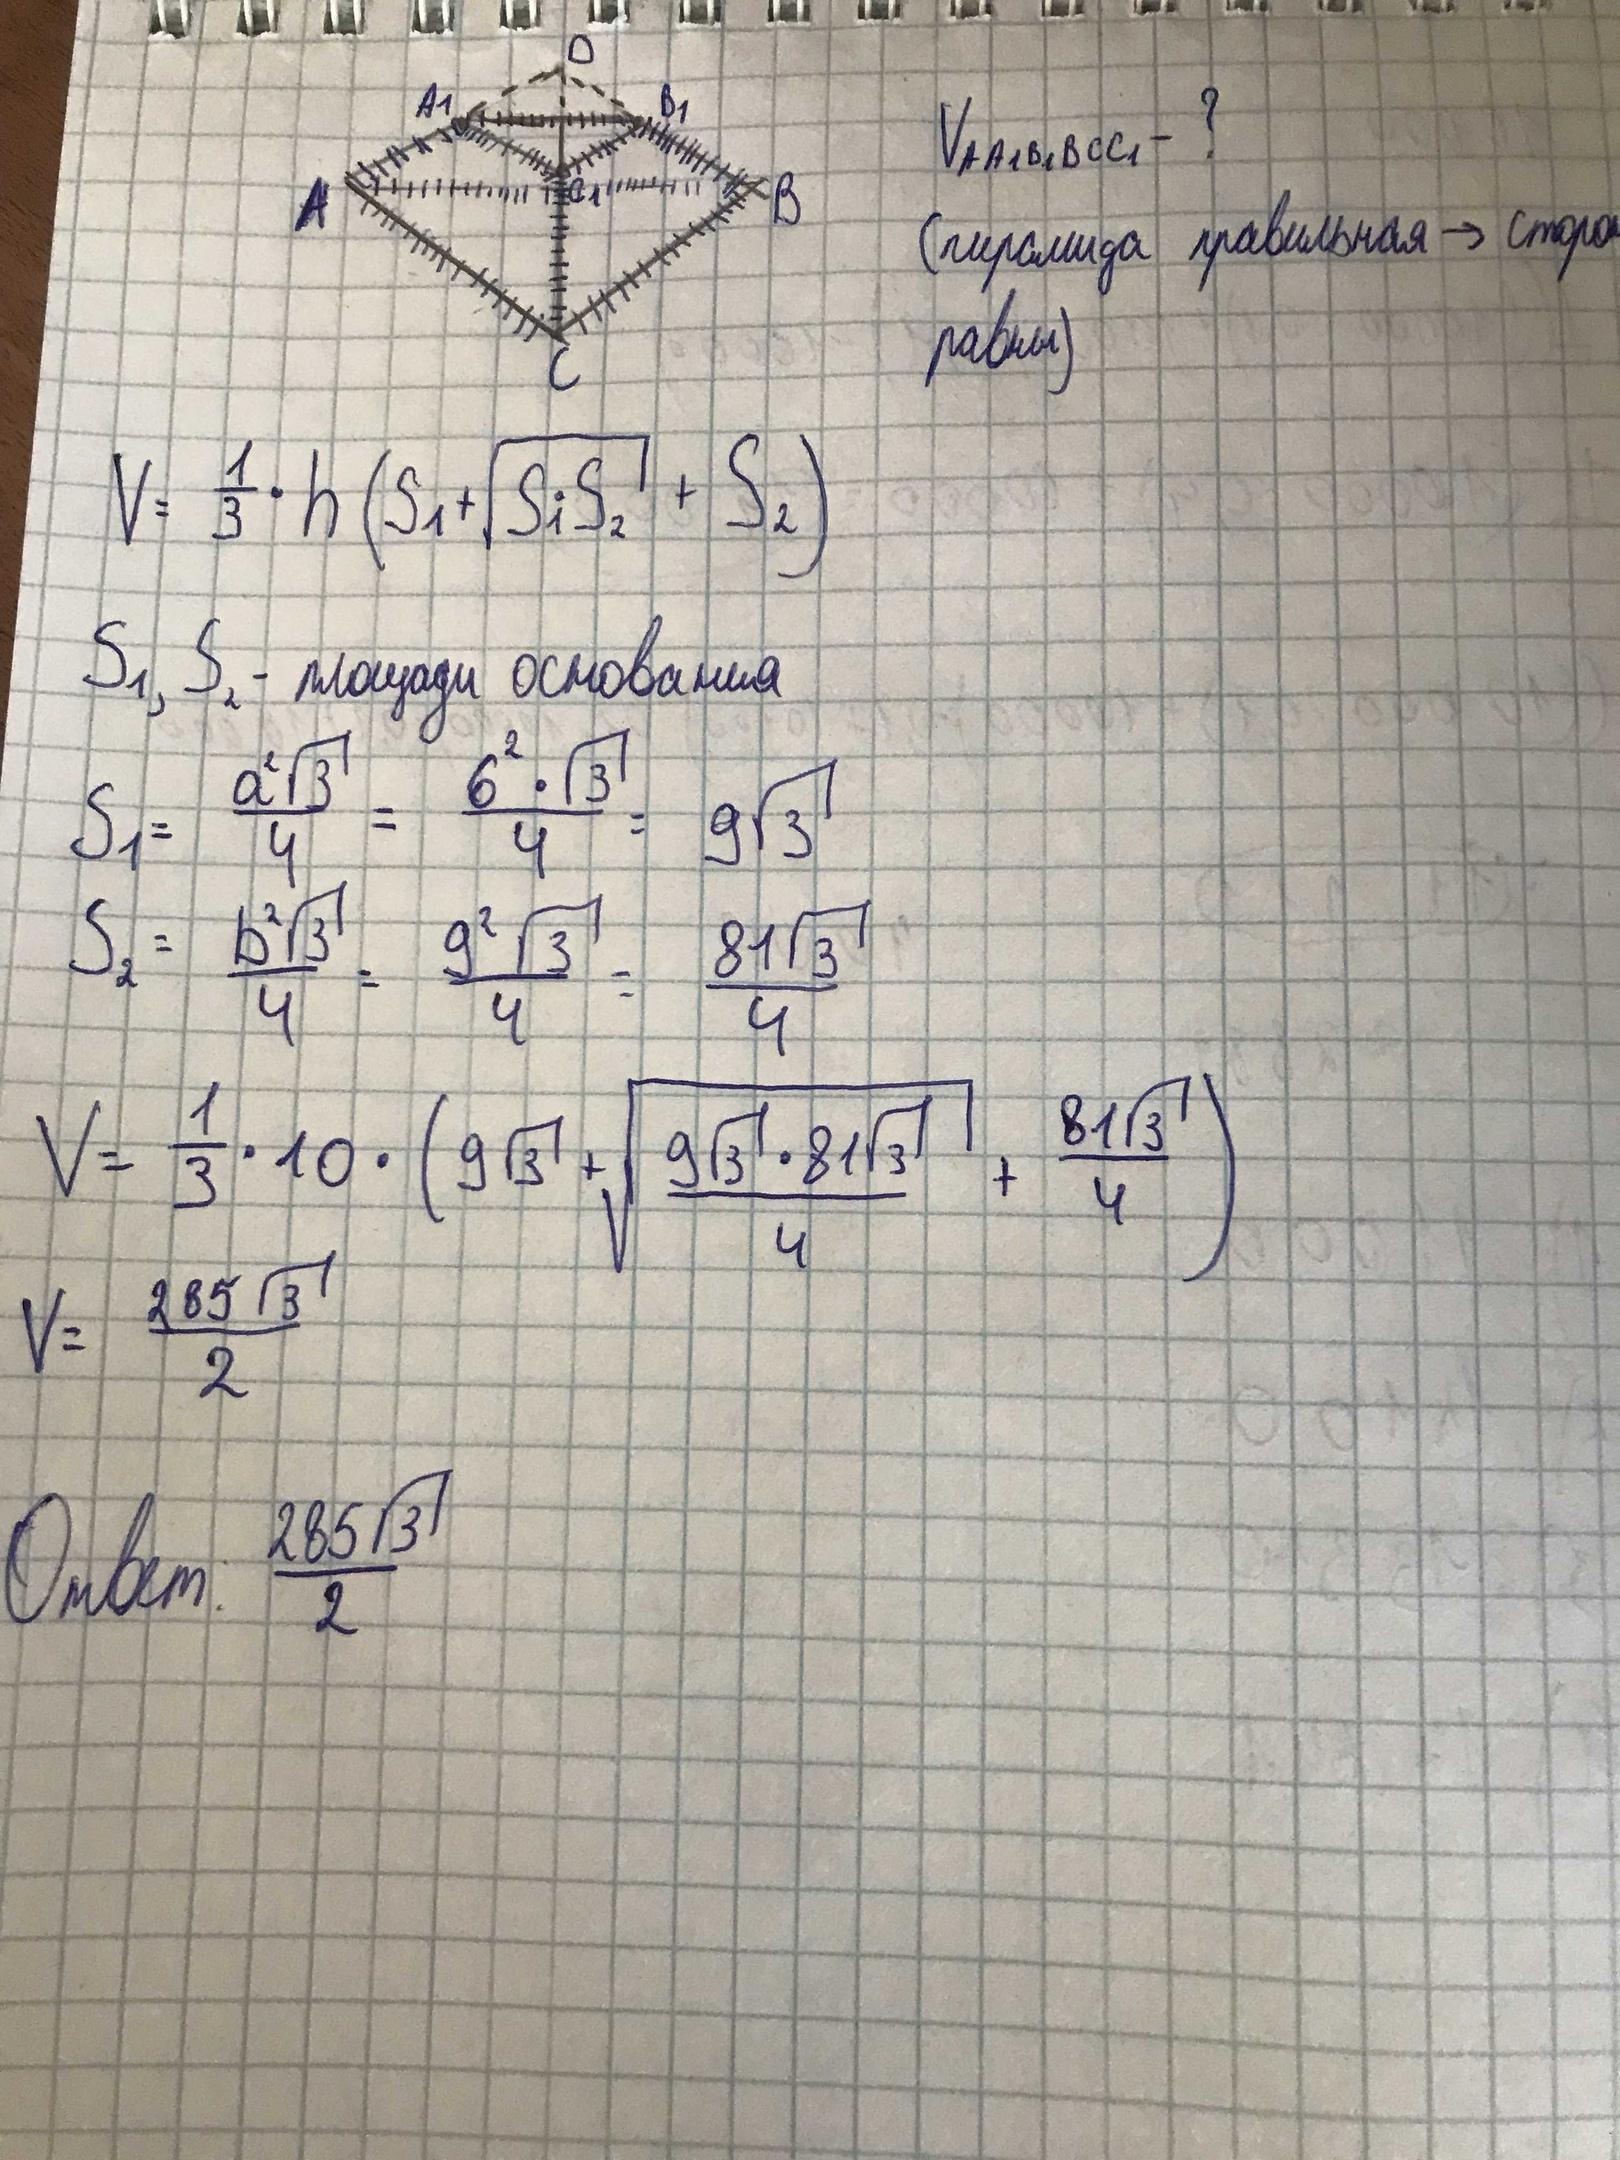 O
A1 B1
A C1 B
C
V AA1B1BCC1 - ?
(пирамида правильная → сторо
равны)
V = 1/3 · h (S1 + √(S1·S2) + S2)
S1, S2 - площади основания
S1 = a²√3/4 = 6²·√3/4 = 9√3
S2 = b²√3/4 = 9²√3/4 = 81√3/4
V = 1/3 · 10 · (9√3 + √(9√3·81√3/4) + 81√3/4)
V = 285√3/2
Ответ: 285√3/2